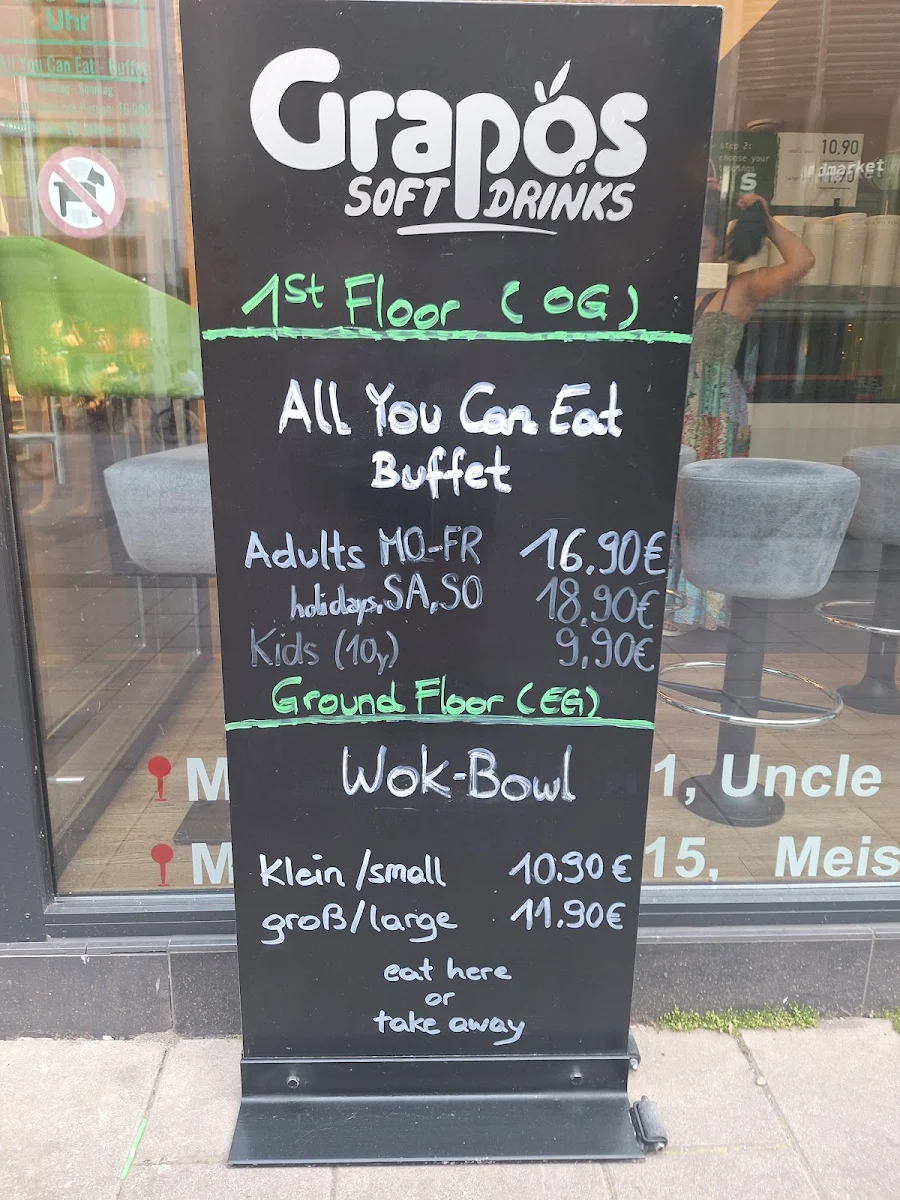 Uhr
All You Can Eat - Buffet
Grapos
SOFT DRINKS
step 2:
choose your
10,90
dmarket
1st Floor (OG)
All You Can Eat
Buffet
Adults MO-FR 16.90€
holidays, SA, SO 18.90€
Kids (10y) 9,90€
Ground Floor (EG)
Wok-Bowl
M 1, Uncle
M 15, Meis
Klein /small 10.90 €
groß/large 11.90€
eat here
or
take away